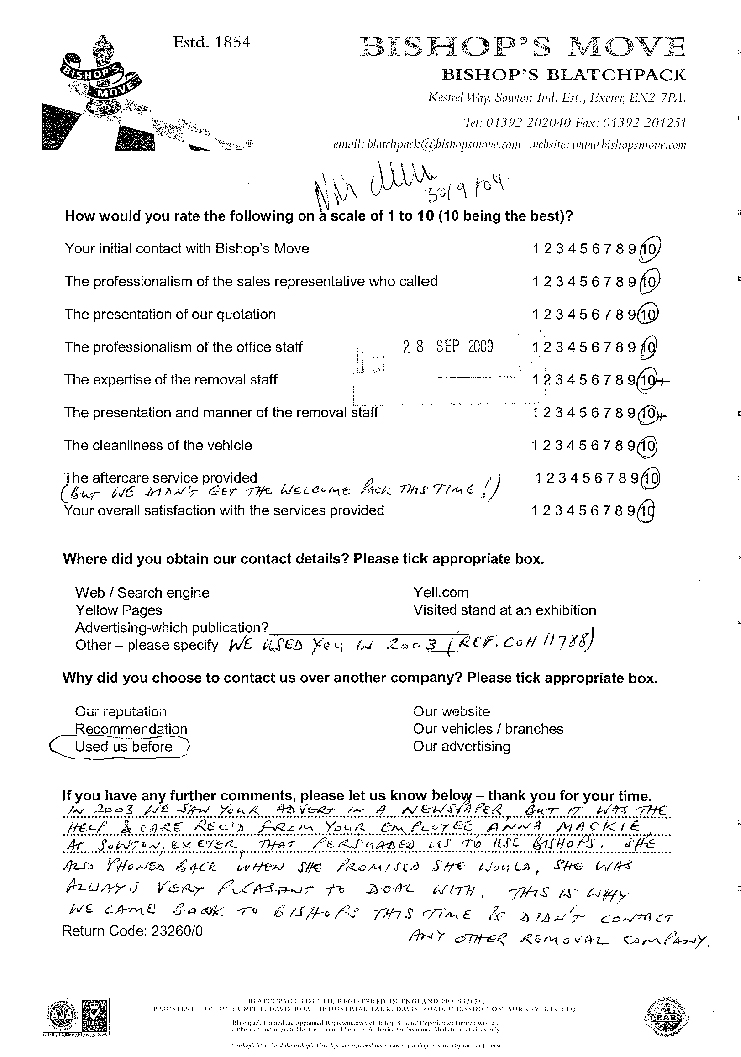 Estd. 1854
BISHOP'S MOVE
BISHOP'S MOVE
BISHOP'S BLATCHPACK
Kestrel Way, Sowton Ind. Est., Exeter, EX2 7PA.
Tel: 01392 202040 Fax: 01392 201251
email: blatchpack@bishopsmove.com website: www.bishopsmove.com
30/9/09
How would you rate the following on a scale of 1 to 10 (10 being the best)?
Your initial contact with Bishop's Move 1 2 3 4 5 6 7 8 9 10
The professionalism of the sales representative who called 1 2 3 4 5 6 7 8 9 10
The presentation of our quotation 1 2 3 4 5 6 7 8 9 10
The professionalism of the office staff 28 SEP 2009 1 2 3 4 5 6 7 8 9 10
The expertise of the removal staff 1 2 3 4 5 6 7 8 9 10+
The presentation and manner of the removal staff 1 2 3 4 5 6 7 8 9 10+
The cleanliness of the vehicle 1 2 3 4 5 6 7 8 9 10
The aftercare service provided 1 2 3 4 5 6 7 8 9 10
(BUT WE DIDN'T GET THE WELCOME PACK THIS TIME!)
Your overall satisfaction with the services provided 1 2 3 4 5 6 7 8 9 10
Where did you obtain our contact details? Please tick appropriate box.
Web / Search engine Yell.com
Yellow Pages Visited stand at an exhibition
Advertising-which publication?
Other – please specify WE USED YOU IN 2003 (REF. COH 11788)
Why did you choose to contact us over another company? Please tick appropriate box.
Our reputation Our website
Recommendation Our vehicles / branches
Used us before Our advertising
If you have any further comments, please let us know below – thank you for your time.
IN 2003 WE SAW YOUR ADVERT IN A NEWSPAPER, BUT IT WAS THE
HELP & CARE REC'D FROM YOUR EMPLOYEE ANNA MACKIE,
AT SOWTON, EXETER, THAT PERSUADED US TO USE BISHOPS. SHE
ALSO PHONED BACK WHEN SHE PROMISED SHE WOULD, SHE WAS
ALWAYS VERY PLEASANT TO DEAL WITH. THIS IS WHY
WE CAME BACK TO BISHOPS THIS TIME & DIDN'T CONTACT
ANY OTHER REMOVAL COMPANY.
Return Code: 23260/0